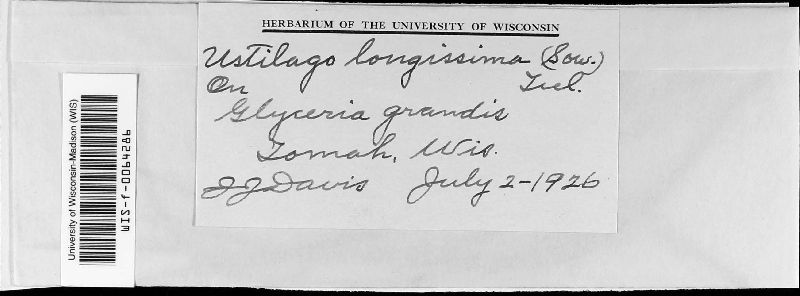 HERBARIUM OF THE UNIVERSITY OF WISCONSIN
Ustilago longissima (Sow.)
On Tul.
Glyceria grandis
Tomah, Wis.
JJ Davis July 2-1926
University of Wisconsin-Madison (WIS)
WIS-f-0064286